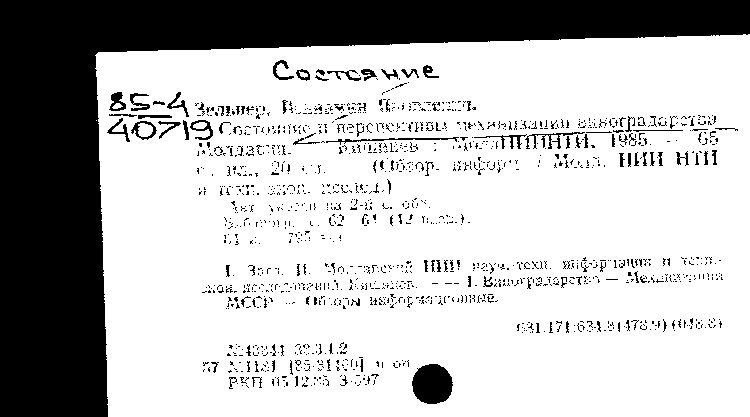 Состояние
85-4
40719
Зельцер, Вениамин Яковлевич.
Состояние и перспективы механизации виноградарства
Молдавии. Кишинев : МолдНИИНТИ, 1985. — 65
с. ил., 20 см. (Обзор. информ / Молд. НИИ НТИ
и техн. экон. исслед.)
Авт. указан на 2-й с. обл.
Библиогр.: с. 62
I. Загл. II. Молдавский НИИ науч.-техн. информации и техн.-
экон. исследований. Кишинев. — — 1. Виноградарство — Механизация
МССР — Обзоры информационные.
631.171:634.8(478.9) (048.8)
32.3.1.2
57 № 1181 и об
РКП 05.12.85